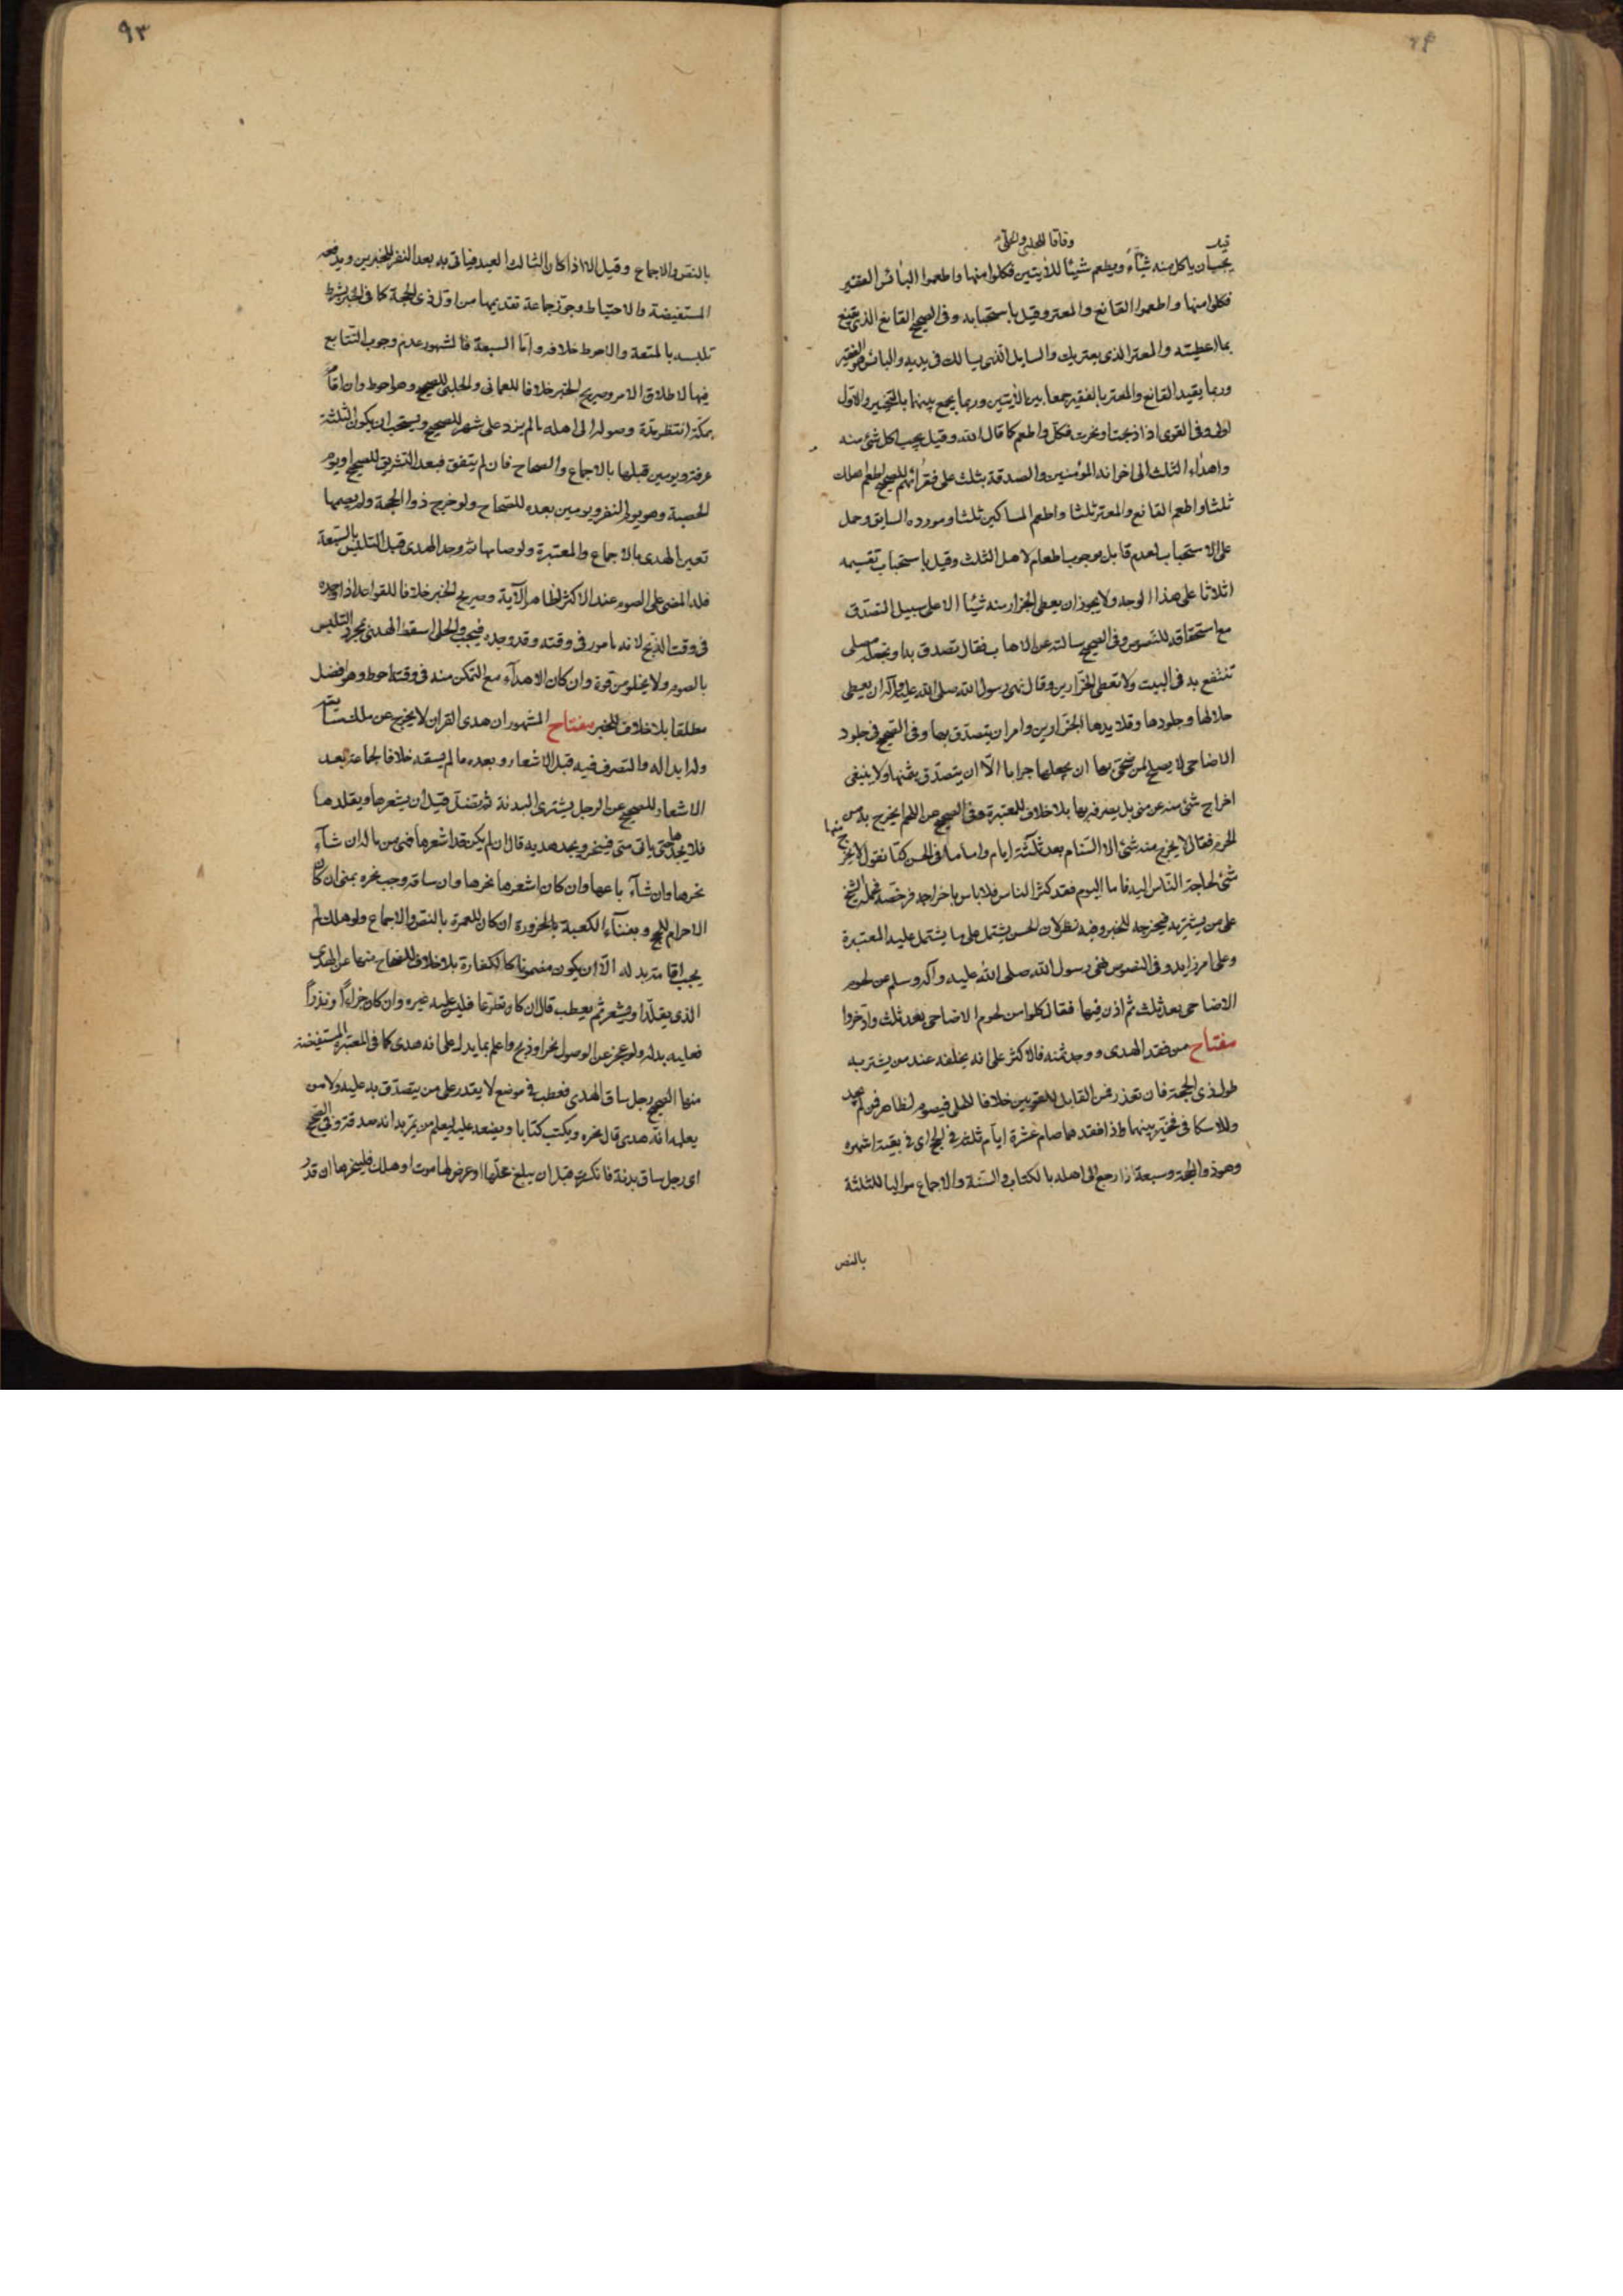 وفاقا للحلبي والحلي
قيل
يجب ان ياكل منه شيئا ويطعم شيئا للآيتين فكلوا منها واطعموا البائس الفقير
فكلوا منها واطعموا القانع والمعتر وقيل باستحبابه وفي الصحيح القانع الذي يقنع
بما اعطيته والمعتر الذي يعتريك والسايل الذي يسالك في يديه والبائس هو الفقير
وربما يقيد القانع والمعتر بالفقير جمعا بين الآيتين وربما يجمع بينهما بالتخيير والاول
احوط وفي القوى اذا ذبحت او نحرت فكل واطعم كما قال الله وقيل يجب اكل شئ منه
واهداء الثلث الى اخوانه المؤمنين والصدقة بثلث على فقرائهم للصحيح اطعم اهلك
ثلثا واطعم القانع والمعتر ثلثا واطعم المساكين ثلثا ومورده السايق وحمل
على الاستحباب لعدم قايل بوجوب اطعام لاهل الثلث وقيل باستحباب تقسيمه
اثلاثا على هذا الوجه ولا يجوز ان يعطى الجزار منه شيئا الا على سبيل التصدق
مع استحقاقه للنصوص وفي الصحيح سالته عن الاهاب فقال تصدق به او تجعله مصلى
تنتفع به في البيت ولا تعطى الجزارين وقال نهى رسول الله صلى الله عليه وآله ان يعطى
جلالها وجلودها وقلايدها الجزارين وامر ان يتصدق بها وفي الصحيح في جلود
الاضاحى لا يصلح لمن ضحى بها ان يجعلها جرابا الا ان يتصدق بثمنها ولا ينبغى
اخراج شئ منه عن منى بل يصرفه بها بلا خلاف للمعتبرة وفي الصحيح عن اللحم يخرج به من
الحرم فقال لا يخرج منه شئ الا السنام بعد ثلثة ايام واما ما في الحسن كنا نقول لا يخرج منها
شئ لحاجة الناس اليه فاما اليوم فقد كثر الناس فلا باس باخراجه فرخصة فحمله الشيخ
على من يشتريه فيخرجه للخبر وفيه نظر لان الحسن يشتمل على ما يشتمل عليه المعتبرة
وعلى امر زايد وفي النصوص نهى رسول الله صلى الله عليه وآله وسلم عن لحوم
الاضاحى بعد ثلث ثم اذن فيها فقال كلوا من لحوم الاضاحى بعد ثلث وادخروا
مفتاح من فقد الهدى ووجد ثمنه فالاكثر على انه يخلفه عند من يشتريه
طول ذى الحجة فان تعذر فمن القابل للقويين خلافا للحلى فيصوم لظاهر فمن لم يجد
وللاسكافى فخير بينهما واذا فقدهما صام عشرة ايام ثلثة في الحج اى في بقية اشهره
وهو ذو الحجة وسبعة اذا رجع الى اهله بالكتاب والسنة والاجماع مواليا للثلثة
بالنص
٩٣
بالنص والاجماع وقيل الا اذا كان الثالث العيد فياتى به بعد النفر للخبرين ويدفعه
المستفيضة والاحتياط وجوز جماعة تقديمها من اول ذى الحجة كما في الخبر بشرط
تلبسه بالمتعة والاحوط خلافه واما السبعة فالمشهور عدم وجوب التتابع
فيها لاطلاق الامر وصريح الخبر خلافا للعمانى والحلبى للصحيح وهو احوط وان اقام
بمكة انتظر مدة وصوله الى اهله ما لم يزد على شهر للصحيح ويستحب ان يكون الثلثة
عرفة ويومين قبلها بالاجماع والصحاح فان لم يتفق فبعد التشريق للصحيح او يوم
الحصبة وهو يوم النفر ويومين بعده للصحاح ولو خرج ذو الحجة ولم يصمها
تعين الهدى بالاجماع والمعتبرة ولو صامها ثم وجد الهدى قبل التلبس بالسبعة
فله المضى على الصوم عند الاكثر لظاهر الآية وصريح الخبر خلافا للقواعد اذا وجده
في وقت الذبح لانه مامور في وقته وقد وجده فيجب والحلى اسقط الهدى بمجرد التلبس
بالصوم ولا يخلو من قوة وان كان الاهداء مع التمكن منه في وقته احوط وهو افضل
مطلقا بلا خلاف للخبر مفتاح المشهور ان هدى القران لا يخرج عن ملك سايقه
وله ابداله والتصرف فيه قبل الاشعار وبعده ما لم يسقه خلافا لجماعة بعد
الاشعار للصحيح عن الرجل يشترى البدنة ثم تضل قبل ان يشعرها ويقلدها
فلا يجدها حتى ياتى منى فينحر ويجد هديه قال ان لم يكن قد اشعرها فهى من ماله ان شاء
نحرها وان شاء باعها وان كان اشعرها نحرها وان ساقه وجب نحره بمنى ان كان
الاحرام للحج وبفناء الكعبة بالحزورة ان كان للعمرة بالنص والاجماع ولو هلك لم
يجب اقامة بدله الا ان يكون مضمونا كالكفارة بلا خلاف للصحاح منها عن الهدى
الذى يقلد او يشعر ثم يعطب قال ان كان تطوعا فليس عليه غيره وان كان جزاء او نذرا
فعليه بدله ولو عجز عن الوصول نحر او ذبح واعلم بما يدل على انه هدى كما في المعتبرة المستفيضة
منها الصحيح رجل ساق الهدى فعطب في موضع لا يقدر على من يتصدق به عليه ولا من
يعلمه انه هدى قال ينحره ويكتب كتابا ويضعه عليه ليعلم من يمر به انه صدقة وفي الصحيح
اى رجل ساق بدنة فانكسرت قبل ان يبلغ محلها او عرض لها موت او هلاك فلينحرها ان قدر